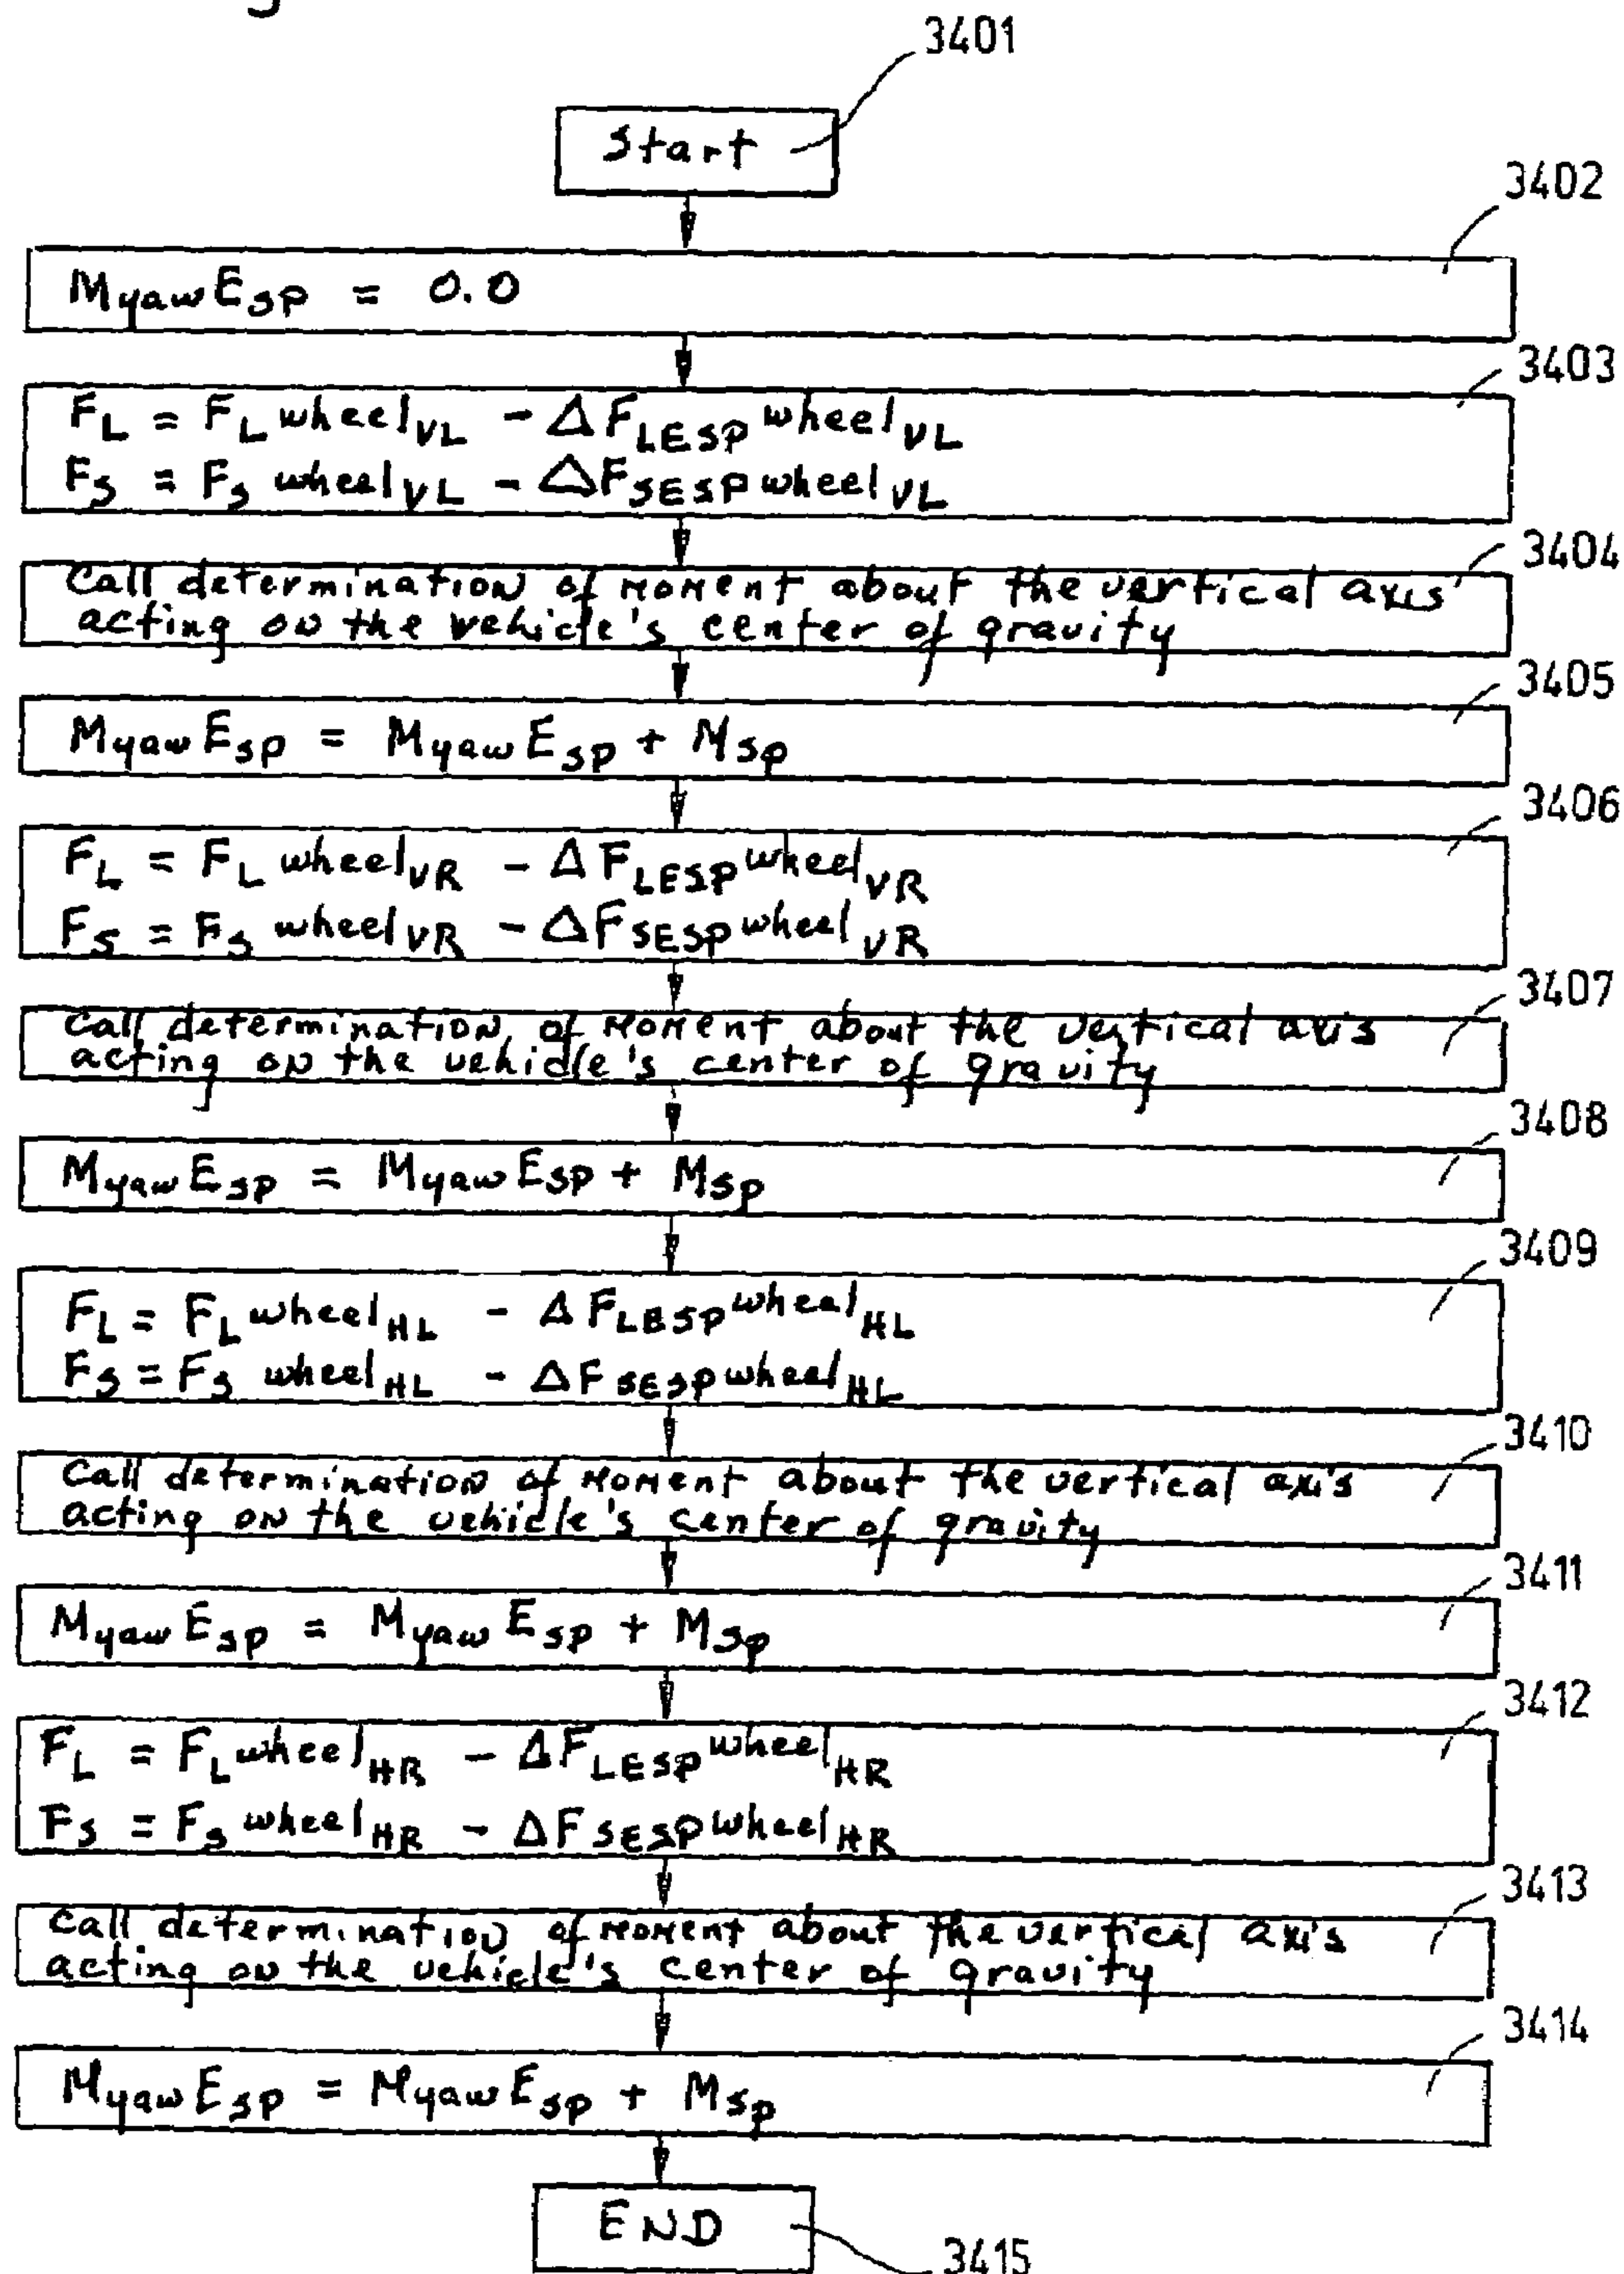 3401
Start
3402
MyawEsp = 0.0
3403
FL = FL wheelVL - ΔFLESP wheelVL
FS = FS wheelVL - ΔFSESP wheelVL
3404
Call determination of moment about the vertical axis
acting on the vehicle's center of gravity
3405
MyawEsp = MyawEsp + Msp
3406
FL = FL wheelVR - ΔFLESP wheelVR
FS = FS wheelVR - ΔFSESP wheelVR
3407
Call determination of moment about the vertical axis
acting on the vehicle's center of gravity
3408
MyawEsp = MyawEsp + Msp
3409
FL = FL wheelHL - ΔFLESP wheelHL
FS = FS wheelHL - ΔFSESP wheelHL
3410
Call determination of moment about the vertical axis
acting on the vehicle's center of gravity
3411
MyawEsp = MyawEsp + Msp
3412
FL = FL wheelHR - ΔFLESP wheelHR
FS = FS wheelHR - ΔFSESP wheelHR
3413
Call determination of moment about the vertical axis
acting on the vehicle's center of gravity
3414
MyawEsp = MyawEsp + Msp
END
3415